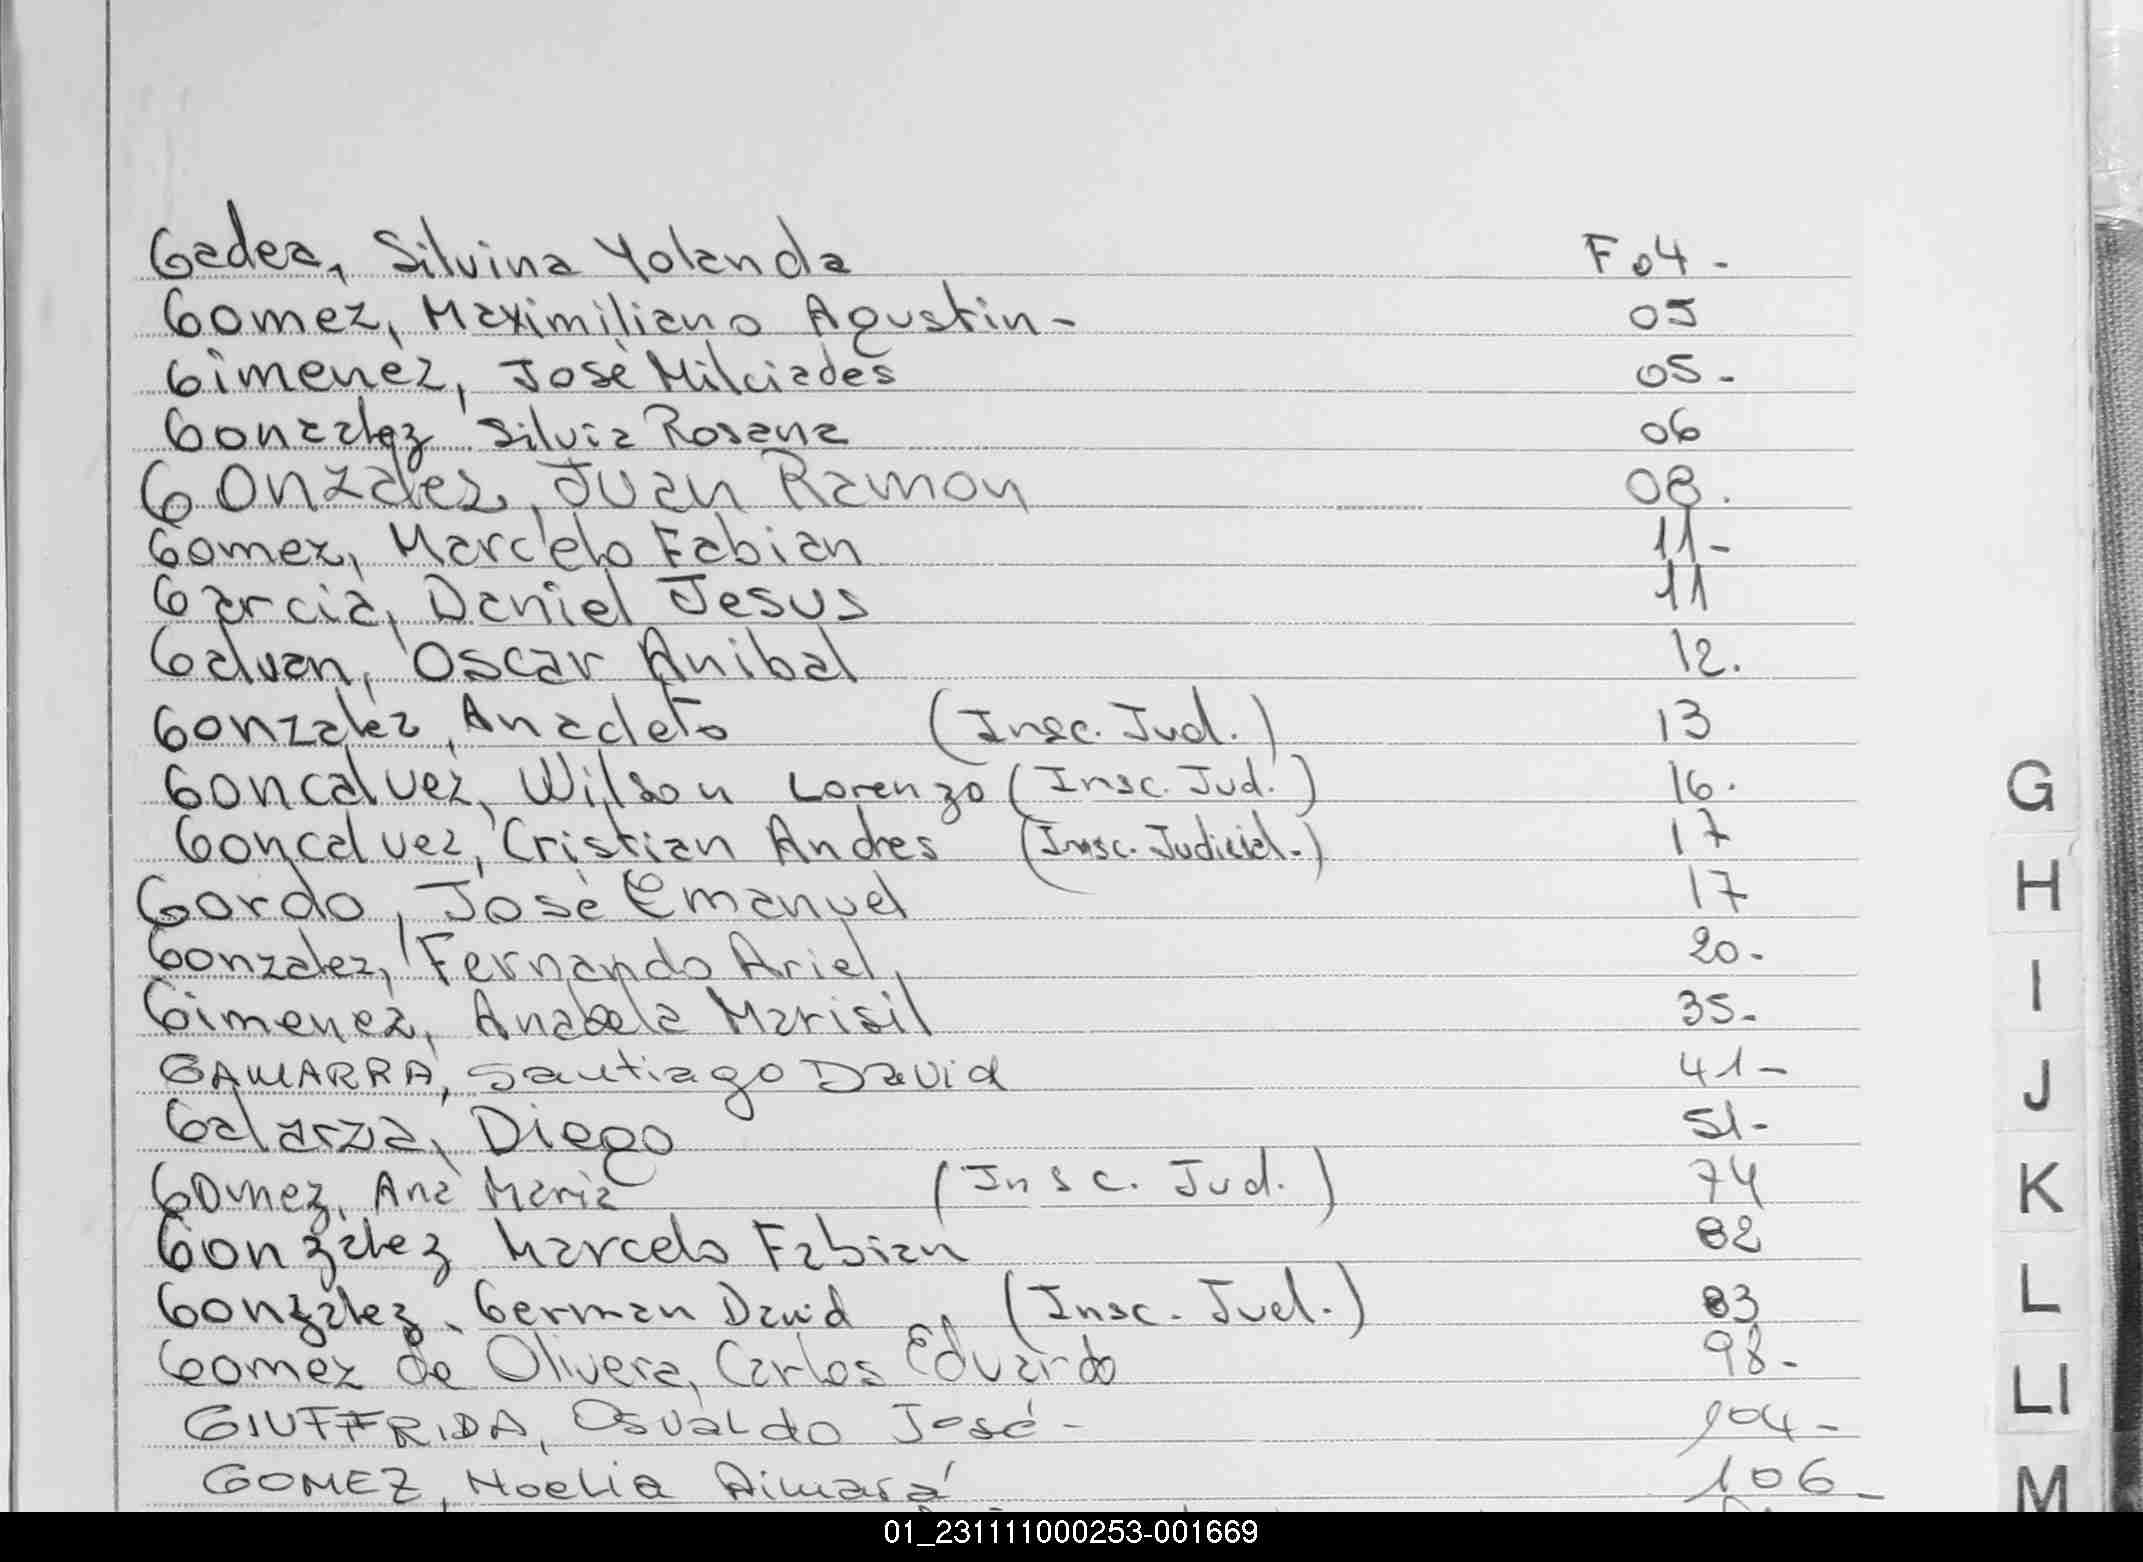 Gadea, Silvina Yolanda F 04-
Gomez, Maximiliano Agustin- 05
Gimenez, José Milciades 05-
Gonzalez Silvia Rosana 06
Gonzalez, Juan Ramon 08.
Gomez, Marcelo Fabian 11-
Garcia, Daniel Jesus 11
Galvan, Oscar Anibal 12.
Gonzalez, Anacleto (Insc. Jud.) 13
Goncalvez, Wilson Lorenzo (Insc. Jud.) 16.
Goncalvez, Cristian Andres (Insc. Judicial.) 17
Gordo, José Emanuel 17
Gonzalez, Fernando Ariel 20-
Gimenez, Anabela Marisil 35-
GAMARRA, Santiago David 41-
Galarza, Diego 51-
Gomez, Ana Maria (Insc. Jud.) 74
Gonzalez Marcelo Fabian 82
Gonzalez, German David (Insc. Jud.) 83
Gomez de Olivera, Carlos Eduardo 98-
GIUFFRIDA, Osvaldo José- 104-
GOMEZ, Noelia Aimará 106-
G
H
I
J
K
L
Ll
M
01_231111000253-001669